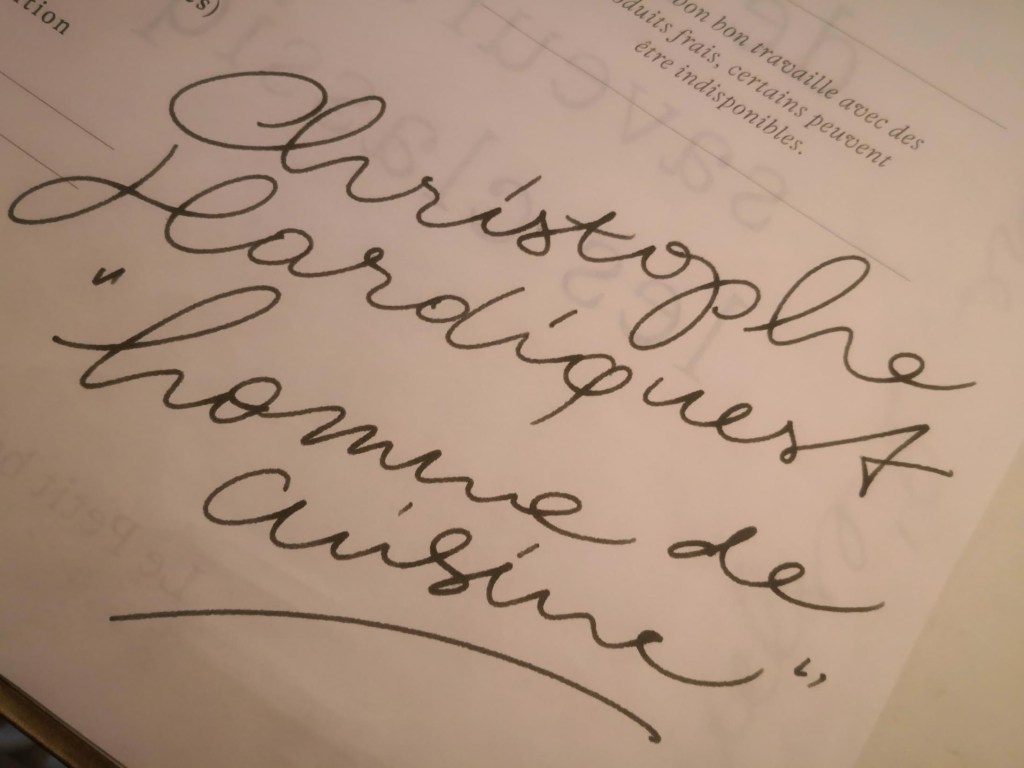 tion
s)
bon bon travaille avec des
oduits frais, certains peuvent
être indisponibles.
Christophe
Hardiquest
"homme de
cuisine"